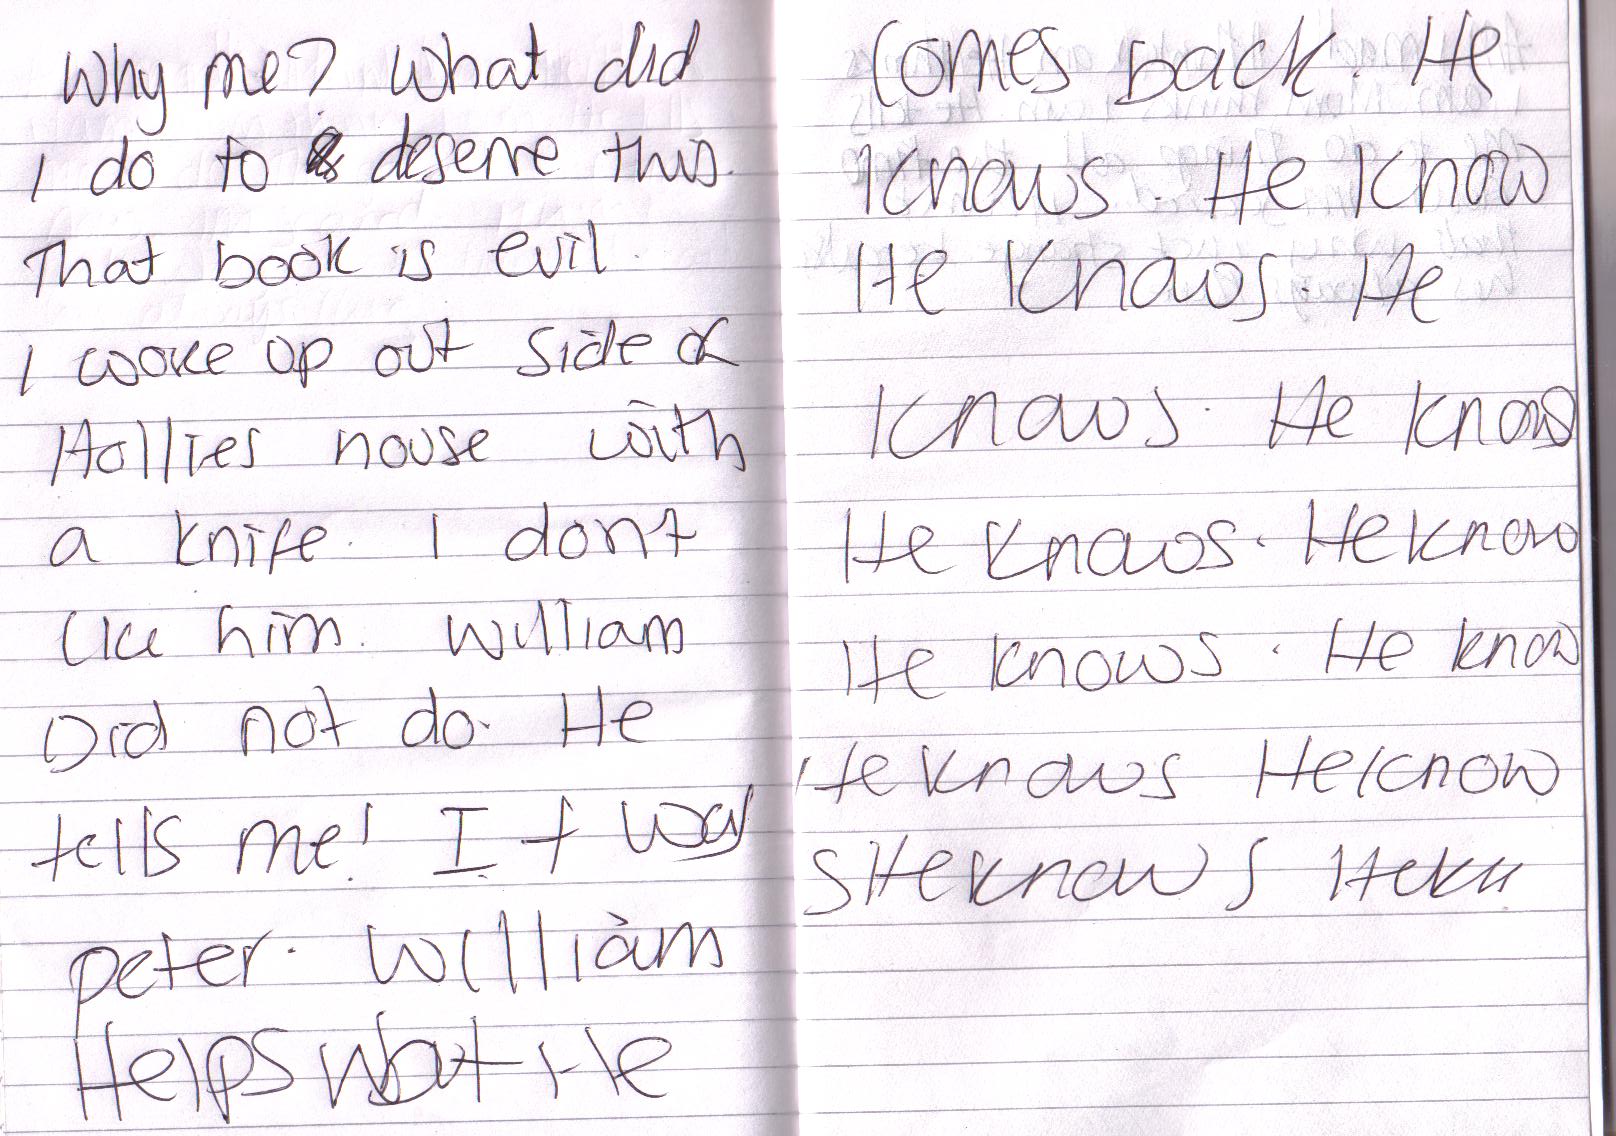 Why me? What did
I do to deserve this.
That book is evil.
I wake up out side of
Hollies house with
a knife. I dont
like him. William
Did not do. He
tells me! It was
peter. William
Helps but He
Comes back. He
Knows. He Know
He Knows. He
Knows. He knows
He knows. He know
He knows. He know
He knows He know
s He knows Hekn